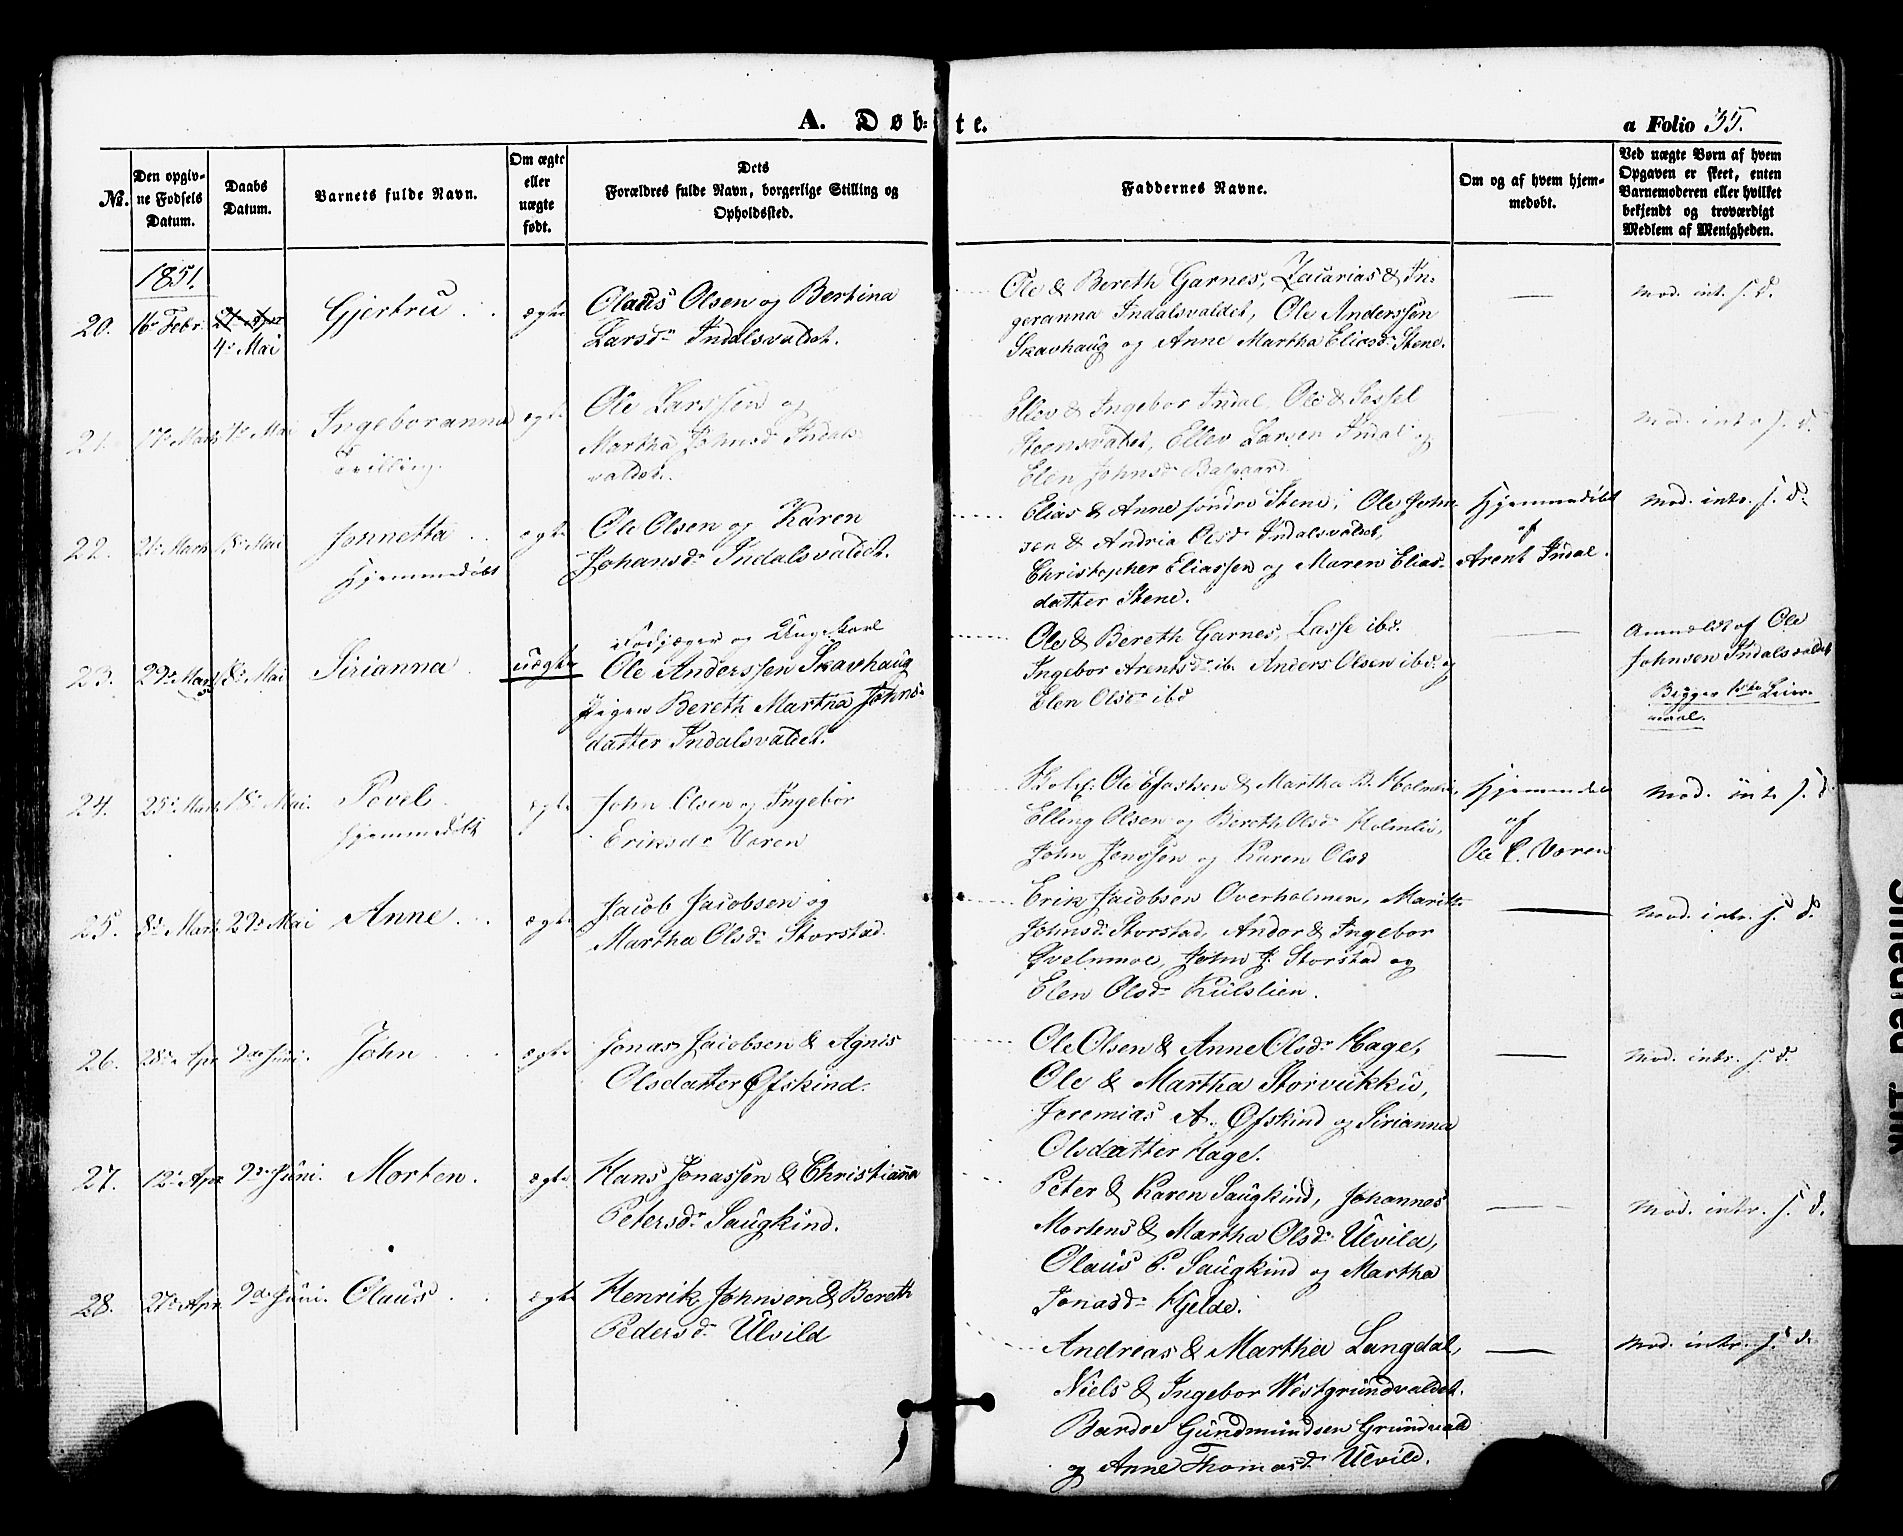 A. Døb- te.
a Folio 35.
No.
Den opgiv-
ne Fødsels
Datum.
Daabs
Datum.
Barnets fulde Navn.
Om ægte
eller
uægte
født.
Dets
Forældres fulde Navn, borgerlige Stilling og
Opholdssted.
Faddernes Navne.
Om og af hvem hjem-
medøbt.
Ved uægte Børn af hvem
Opgaven er skeet, enten
Barnemoderen eller hvilket
bekjendt og troværdigt
Medlem af Menigheden.
1851.
20. 16de Febr. 4de Mai
Gjertru
ægte
Olaus Olsen og Bertina
Larsdr Indalsvaldet.
Ole & Bereth Garnes, Zacarias & In-
geranna Indalsvaldet, Ole Anderssen
Skavhaug og Anne Martha Eliasdr Stene.
—
Mod. int. s. d.
21. 17de Marts Mai
Ingeboranna
Tvilling.
ægte
Ole Larssen og
Martha Johnsdr Indals-
valdet.
Ellev & Ingebor Indal, Ole & Sessel
Steensvaldet, Ellev Larsen Indal og
Elen Johnsdr Balgaard.
Mod. intr. s. d.
22. 21de Marts 18de Mai
Jonnetta
Hjemmedøbt
ægte
Ole Olsen og Karen
Johansdr Indalsvaldet.
Elias & Anne søndre Stene, Ole John-
sen & Andria Olsdr Indalsvaldet,
Christopher Eliassen og Maren Elias-
datter Stene.
Hjemmedøbt
af
Arent Indal.
Mod. intr. s. d.
23. 29de Marts 18de Mai
Sirianna
uægte
Fodjæger og Ungekarl
Ole Anderssen Skavhaug
Pigen Bereth Martha Johns-
datter Indalsvaldet.
Ole & Bereth Garnes, Lasse ibd.
Ingebor Arentsdr ib. Anders Olsen ibd. og
Elen Olsdr ibd
—
Anmeldt af Ole
Johnsen Indalsvaldet
Begges 1ste Leier-
maal.
24. 25de Marts 18de Mai.
Povel
Hjemmedøbt
ægte
John Olsen og Ingebor
Eriksdr Voren
Ole & Martha B. Holmlie,
Elling Olsen og Bereth Olsdr Holmlie,
John Jenssen og Karen Olsd
Hjemmedøbt
af
Ole Voren
Mod. int. s. d.
25. 8de Marts 29de Mai
Anne
ægte
Jacob Jacobsen og
Martha Olsdr Storstad.
Erik Jacobsen Overholmen, Marit
Johnsdr Storstad, Andor & Ingebor
Qvelmoe, John J. Storstad og
Elen Olsdr Kulslien.
—
Mod. intr. s. d.
26. 28de Apr 9de Juni.
John
ægte
Jonas Jacobsen & Agnis
Olsdatter Øfskind.
Ole Olsen & Anne Olsdr Hage,
Ole & Martha Storvukku,
Jeremias A. Øfskind og Sirianna
Olsdatter Hage.
—
Mod. intr. s. d.
27. 12de Apr 9de Juni.
Morten.
ægte
Hans Jonassen & Christianna
Petersdr Saugkind.
Peter & Karen Saugkind, Johannes
Mortens & Martha Olsdr Ulvild,
Olaus P. Saugkind og Martha
Jonasdr Hjelde.
—
Mod. intr. s. d.
28. 27de Apr 9de Juni.
Olaus
ægte
Henrik Johnsen & Bereth
Pedersdr Ulvild
Andreas & Martha Langdal,
Niels & Ingebor Westgrundvaldet.
Bardo Gundmundsen Grundvald
og Anne Thomasdr Ulvild.
—
Mod. intr. s. d.